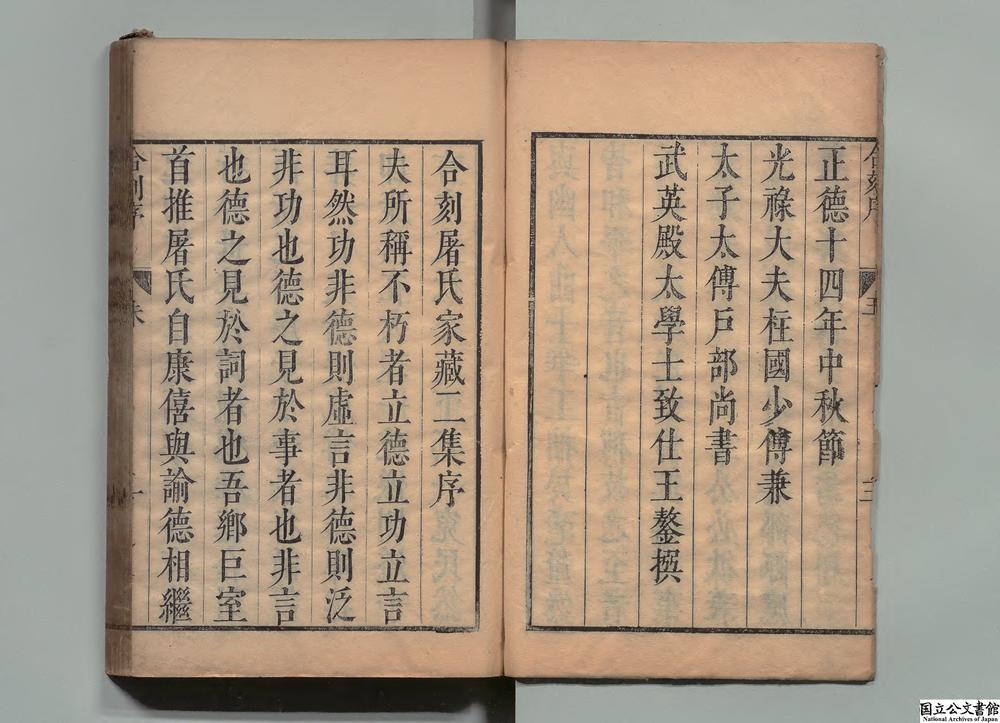 正德十四年中秋節
光祿大夫柱國少傅兼
太子太傅戶部尚書
武英殿大學士致仕王鏊撰
合刻屠氏家藏二集序
夫所稱不朽者立德立功立言
耳然功非德則虛言非德則泛
非功也德之見於事者也非言
也德之見於詞者也吾鄉巨室
首推屠氏自康僖與諭德相繼
合刻序
国立公文書館
National Archives of Japan